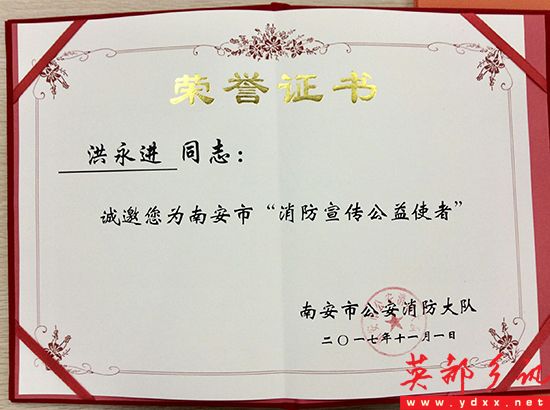 荣誉证书
洪永进 同志：
诚邀您为南安市“消防宣传公益使者”
南安市公安消防大队
二〇一七年十一月一日
英都乡讯
www.ydxx.net